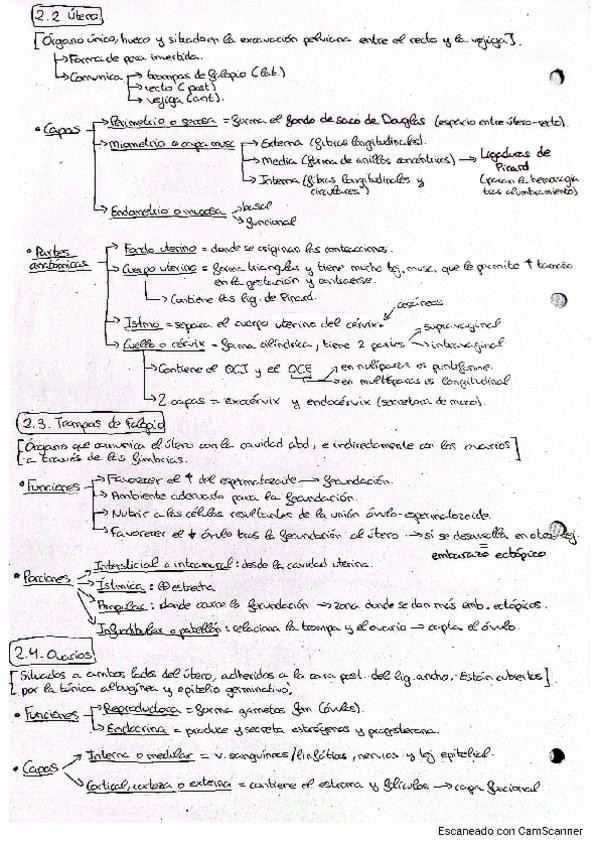 2.2 Útero
[Órgano único, hueco y situado en la excavación pelviana entre el recto y la vejiga].
↳ Forma de pera invertida.
↳ Comunica → trompas de falopio (lat.)
→ recto (post)
→ vejiga (ant).
• Capas → Perimetrio o serosa = forma el fondo de saco de Douglas (espacio entre útero-recto).
→ Miometrio o capa musc → Externa (fibras longitudinales).
→ Media (forma de anillos concéntricos) → Ligaduras de Pinard
→ Interna (fibras longitudinales y circulares) (paran la hemorragia tras alumbramiento)
→ Endometrio o mucosa → basal
→ funcional
• Partes anatómicas → Fondo uterino = donde se originan las contracciones.
→ Cuerpo uterino = forma triangular y tiene mucho tej. musc. que le permite ↑ tamaño
en la gestación y contraerse.
↳ Contiene las lig. de Pinard.
→ Istmo = separa el cuerpo uterino del cérvix. cesáreas
→ Cuello o cérvix = forma cilíndrica, tiene 2 partes → supravaginal
→ intravaginal
→ Contiene el OCI y el OCE → en nulíparas es puntiforme.
→ en multíparas es longitudinal
→ 2 capas = exocérvix y endocérvix (secretora de moco).
2.3. Trompas de Falopio
[Órgano que comunica el útero con la cavidad abd, e indirectamente con los ovarios]
a través de las fimbrias.
• Funciones → Favorecer el ↑ del espermatozoide → fecundación.
→ Ambiente adecuado para la fecundación.
→ Nutrir a las células resultantes de la unión óvulo-espermatozoide.
→ Favorecer el ↓ óvulo tras la fecundación al útero → si se desarrolla en otro tej.
=
embarazo ectópico
• Porciones → Intersticial o intramural: desde la cavidad uterina.
→ Ístmica: ⊕ estrecha
→ Ampular: donde ocurre la fecundación → zona donde se dan más emb. ectópicos.
→ Infundibular o pabellón: relaciona la trompa y el ovario → capta el óvulo.
2.4. Ovarios
[Situados a ambos lados del útero, adheridos a la cara post. del lig. ancho. Están cubiertos]
por la túnica albugínea y epitelio germinativo.
• Funciones → Reproductora = forma gametos fem (óvulos).
→ Endocrina = produce y secreta estrógenos y progesterona.
• Capas → Interna o medular = v. sanguíneos/linfáticos, nervios y tej epitelial.
→ Cortical, corteza o externa = contiene el estroma y folículos → capa funcional
Escaneado con CamScanner